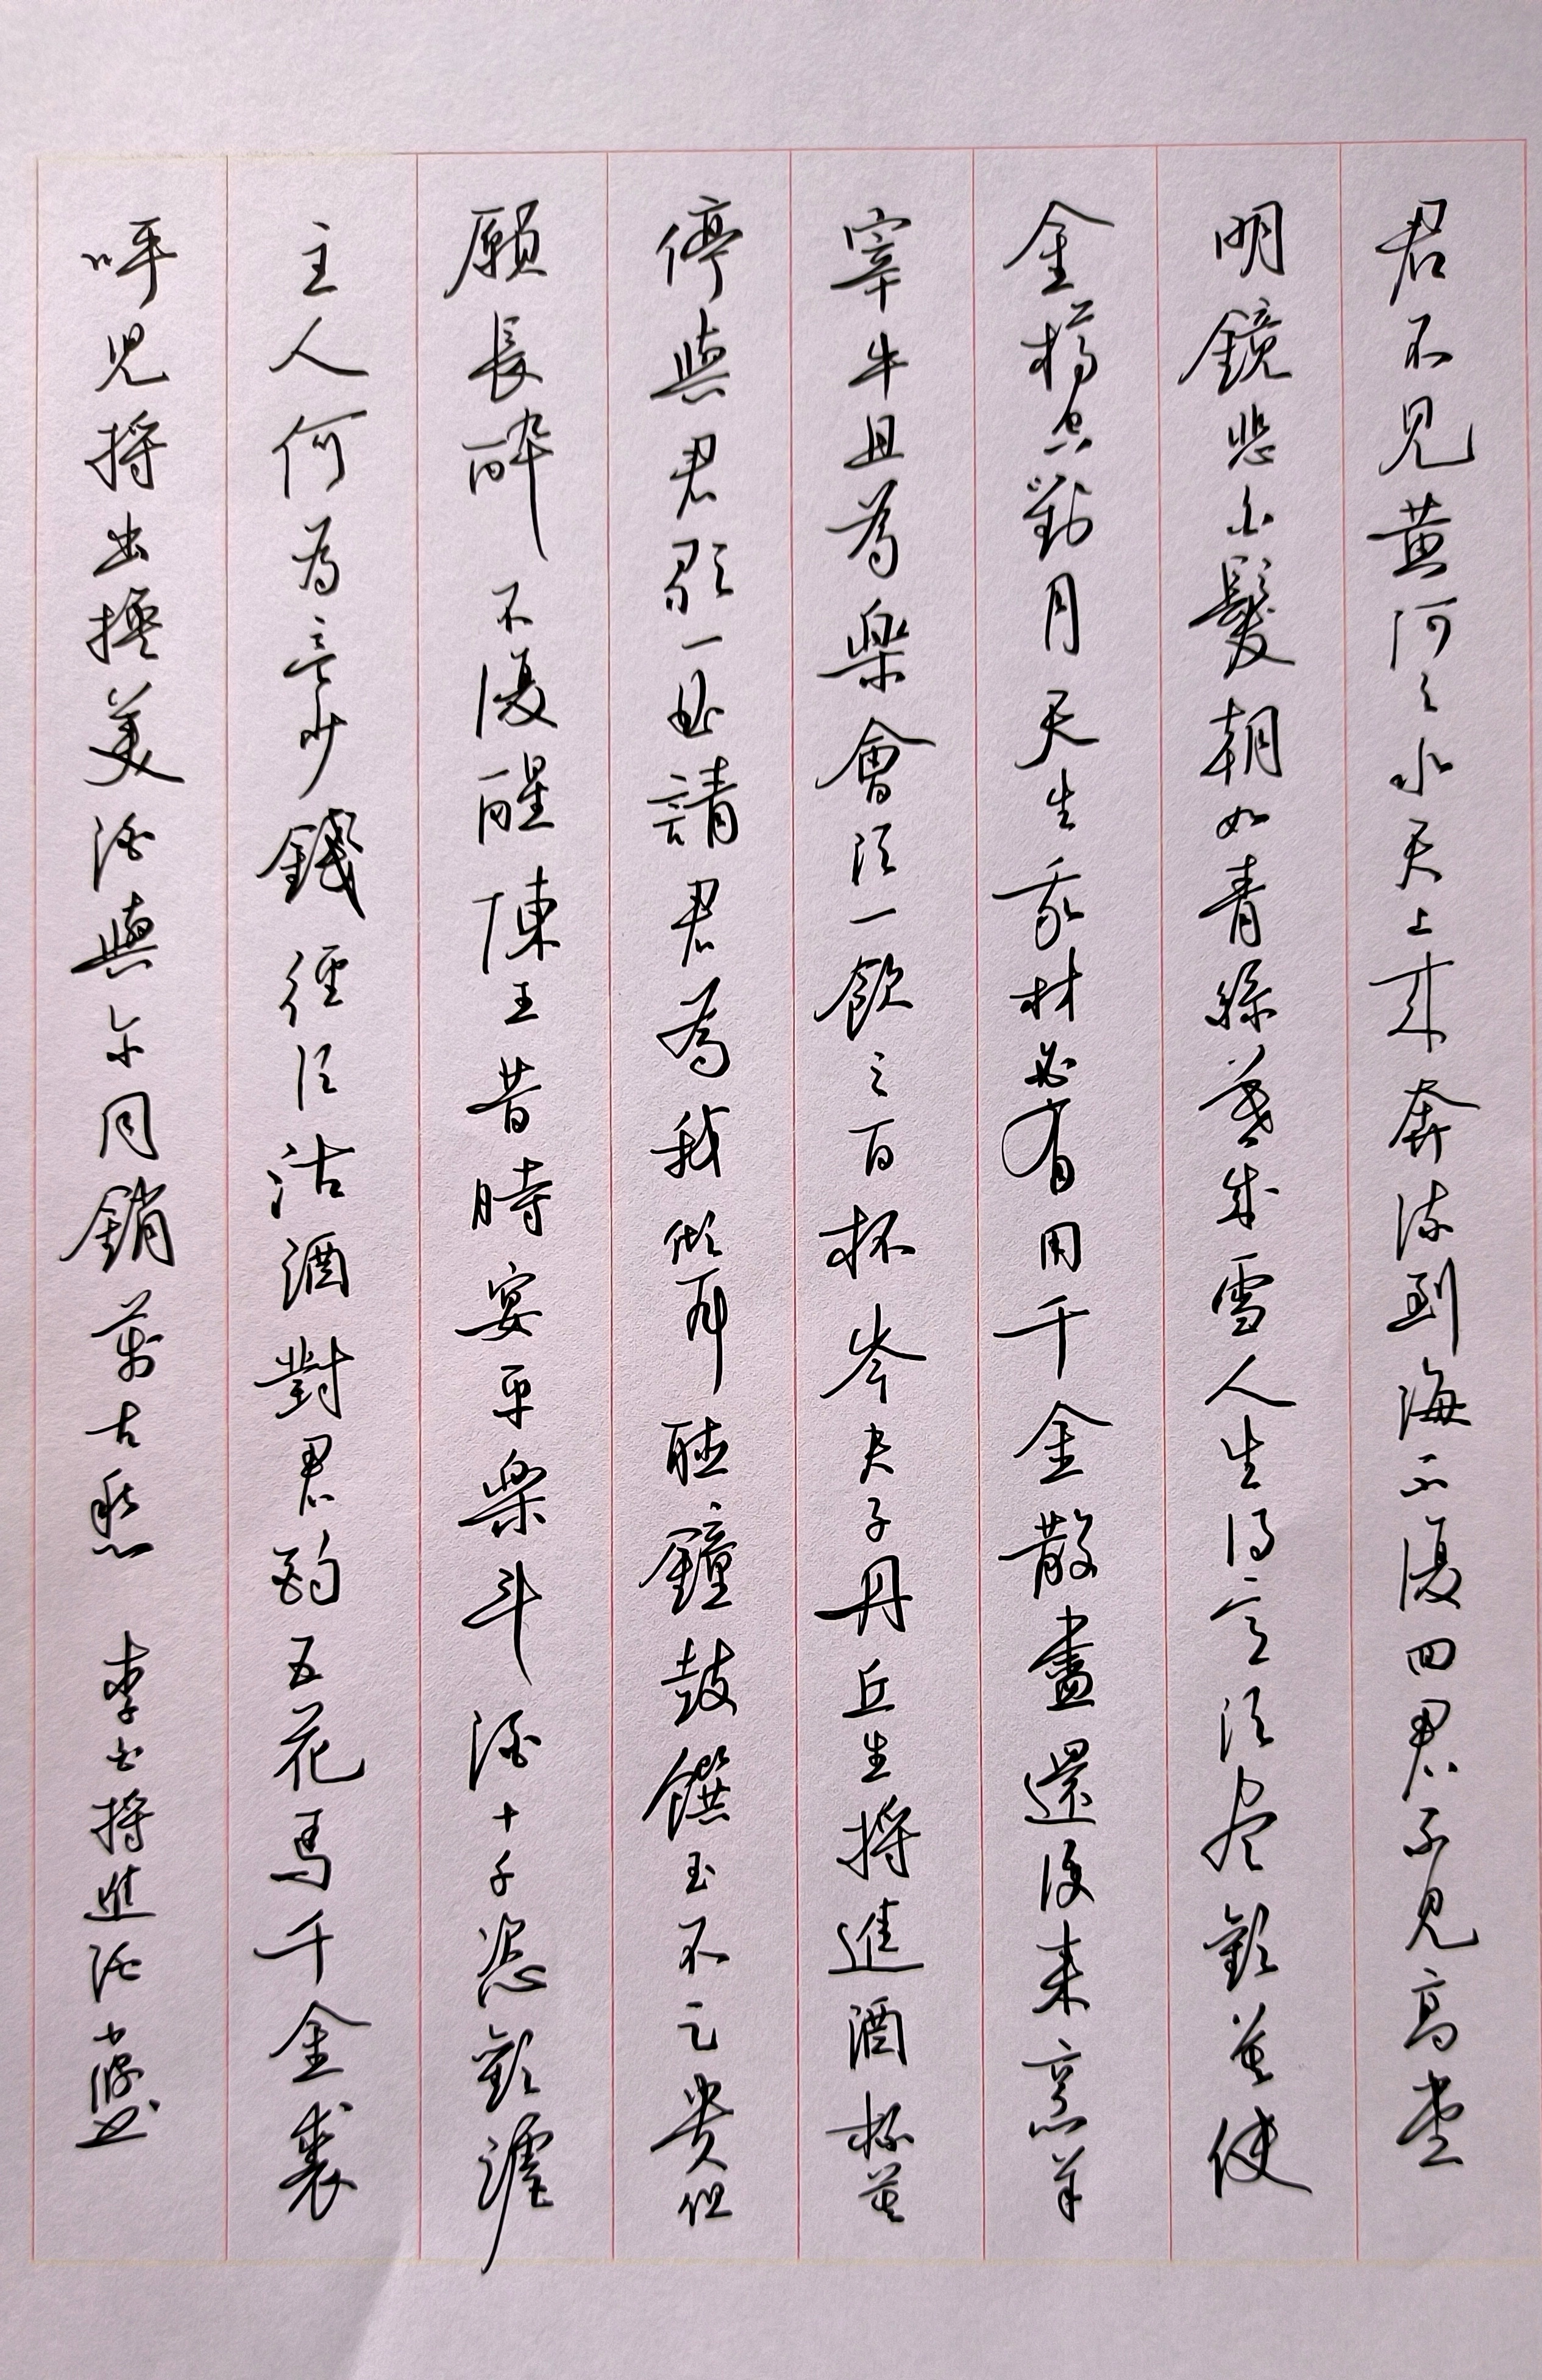 君不見黃河之水天上來奔流到海不復回君不見高堂
明鏡悲白髮朝如青絲暮成雪人生得意須尽歡莫使
金樽空對月天生我材必有用千金散盡還復來烹羊
宰牛且為樂會須一飲三百杯岑夫子丹丘生將進酒杯莫
停與君歌一曲請君為我傾耳聽鐘鼓饌玉不足貴但
願長醉不復醒陳王昔時宴平樂斗酒十千恣歡謔
主人何為言少錢徑須沽酒對君酌五花馬千金裘
呼児將出換美酒與尓同銷萬古愁 李白將進酒